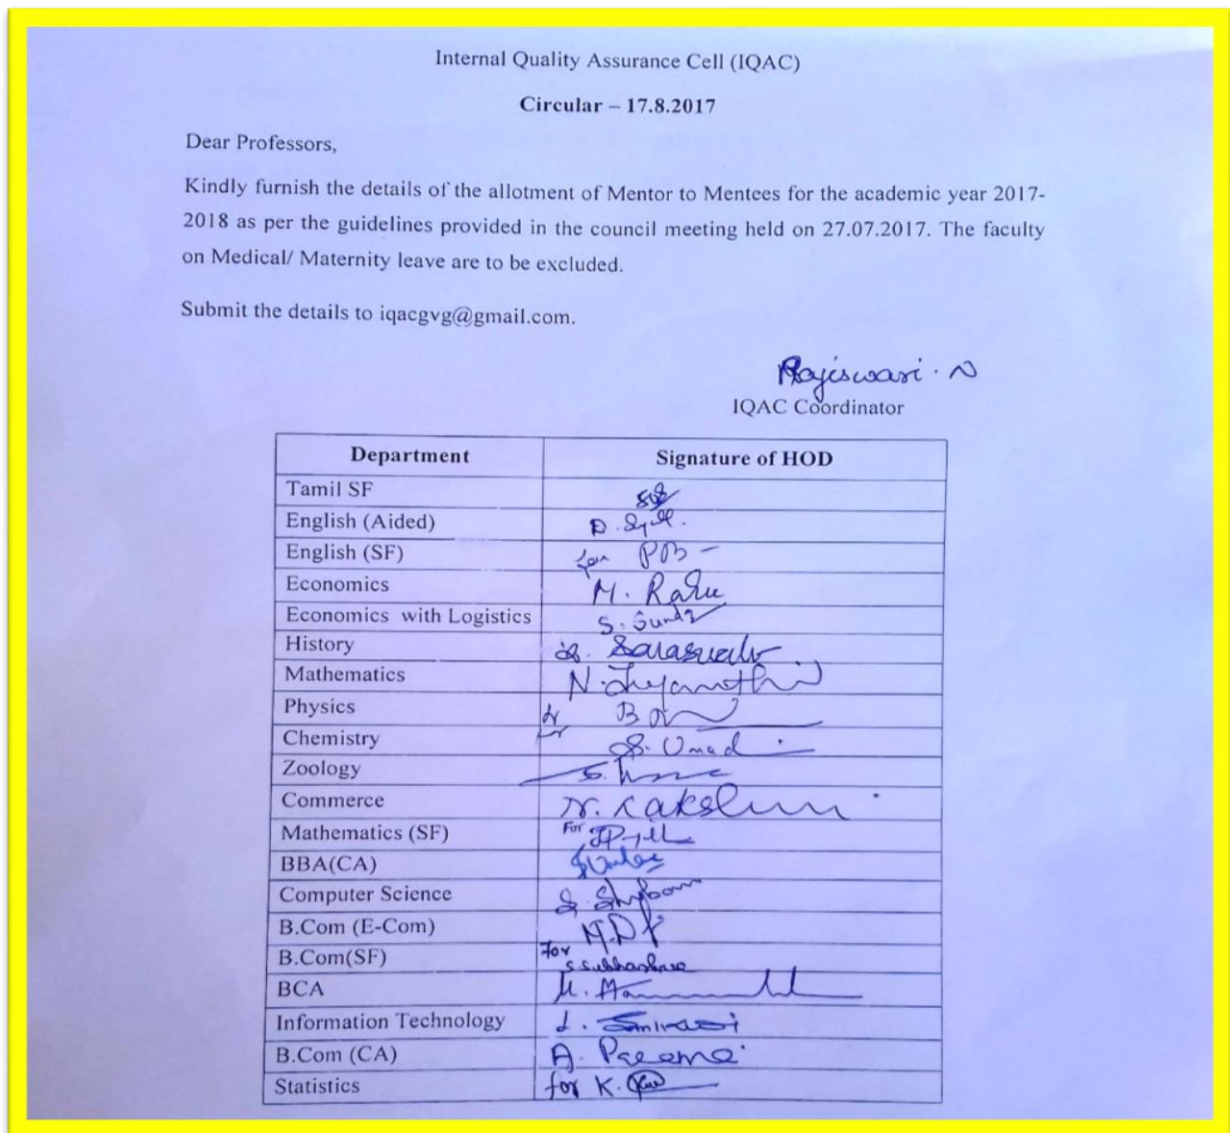 Internal Quality Assurance Cell (IQAC)
Circular – 17.8.2017
Dear Professors,
Kindly furnish the details of the allotment of Mentor to Mentees for the academic year 2017-
2018 as per the guidelines provided in the council meeting held on 27.07.2017. The faculty
on Medical/ Maternity leave are to be excluded.
Submit the details to iqacgvg@gmail.com.
Rajeswari. N
IQAC Coordinator
Department Signature of HOD
Tamil SF
English (Aided) D.
English (SF) for
Economics M.
Economics with Logistics S.
History
Mathematics N.
Physics
Chemistry S.
Zoology S.
Commerce N.
Mathematics (SF) For
BBA(CA)
Computer Science S.
B.Com (E-Com)
B.Com(SF) For
BCA
Information Technology
B.Com (CA) A.
Statistics for K.